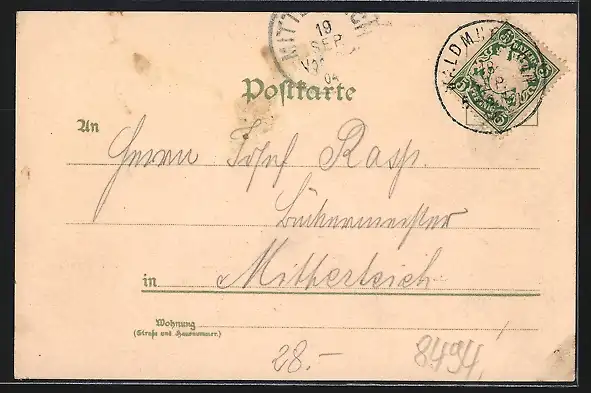 MITTERTEICH
19
SEP.
04
WALDMÜN
BAYERN
5
Postkarte
An
Herrn Josef Rasp.
Bäckermeister
Mitterteich
in
Wohnung
(Straße und Hausnummer.)
28.-
8494